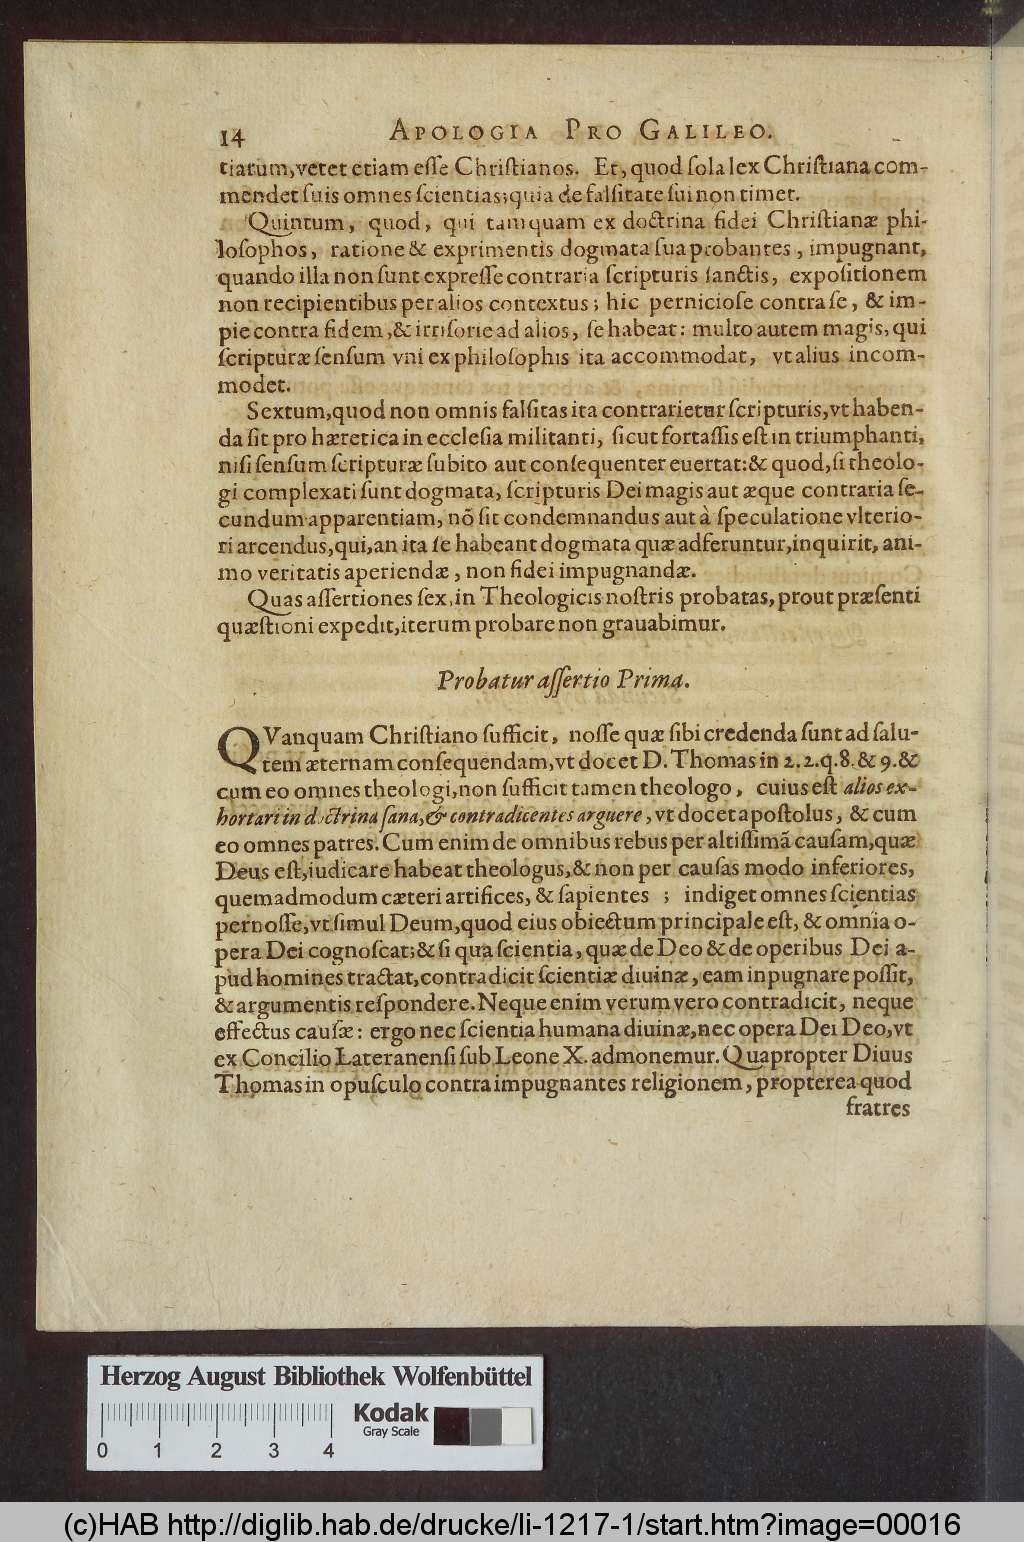 14 APOLOGIA PRO GALILEO.
tiarum, vetet etiam eſſe Chriſtianos. Et, quod ſola lex Chriſtiana com-
mendet ſuis omnes ſcientias; quia de falſitate ſui non timet.
Quintum, quod, qui tamquam ex doctrina fidei Chriſtianæ phi-
loſophos, ratione & exprimentis dogmata ſua probantes, impugnant,
quando illa non ſunt expreſſe contraria ſcripturis ſanctis, expoſitionem
non recipientibus per alios contextus; hic pernicioſe contra ſe, & im-
pie contra fidem, & irriſorie ad alios, ſe habeat: multo autem magis, qui
ſcripturæ ſenſum vni ex philoſophis ita accommodat, vt alius incom-
modet.
Sextum, quod non omnis falſitas ita contrarietur ſcripturis, vt haben-
da ſit pro hæretica in eccleſia militanti, ſicut fortaſſis eſt in triumphanti,
niſi ſenſum ſcripturæ ſubito aut conſequenter euertat: & quod, ſi theolo-
gi complexati ſunt dogmata, ſcripturis Dei magis aut æque contraria ſe-
cundum apparentiam, nõ ſit condemnandus aut à ſpeculatione vlterio-
ri arcendus, qui, an ita ſe habeant dogmata quæ adferuntur, inquirit, ani-
mo veritatis aperiendæ, non fidei impugnandæ.
Quas aſſertiones ſex, in Theologicis noſtris probatas, prout præſenti
quæſtioni expedit, iterum probare non grauabimur.
Probatur aſſertio Prima.
QVanquam Chriſtiano ſufficit, noſſe quæ ſibi credenda ſunt ad ſalu-
tem æternam conſequendam, vt docet D. Thomas in 2. 2. q. 8. & 9. &
cum eo omnes theologi, non ſufficit tamen theologo, cuius eſt alios ex-
hortari in doctrina ſana, & contradicentes arguere, vt docet apoſtolus, & cum
eo omnes patres. Cum enim de omnibus rebus per altiſſimã cauſam, quæ
Deus eſt, iudicare habeat theologus, & non per cauſas modo inferiores,
quemadmodum cæteri artifices, & ſapientes ; indiget omnes ſcientias
pernoſſe, vt ſimul Deum, quod eius obiectum principale eſt, & omnia o-
pera Dei cognoſcat; & ſi qua ſcientia, quæ de Deo & de operibus Dei a-
pud homines tractat, contradicit ſcientiæ diuinæ, eam inpugnare poſſit,
& argumentis reſpondere. Neque enim verum vero contradicit, neque
effectus cauſæ: ergo nec ſcientia humana diuinæ, nec opera Dei Deo, vt
ex Concilio Lateranenſi ſub Leone X. admonemur. Quapropter Diuus
Thomas in opuſculo contra impugnantes religionem, propterea quod
fratres
Herzog August Bibliothek Wolfenbüttel
Kodak
Gray Scale
0 1 2 3 4
(c)HAB http://diglib.hab.de/drucke/li-1217-1/start.htm?image=00016